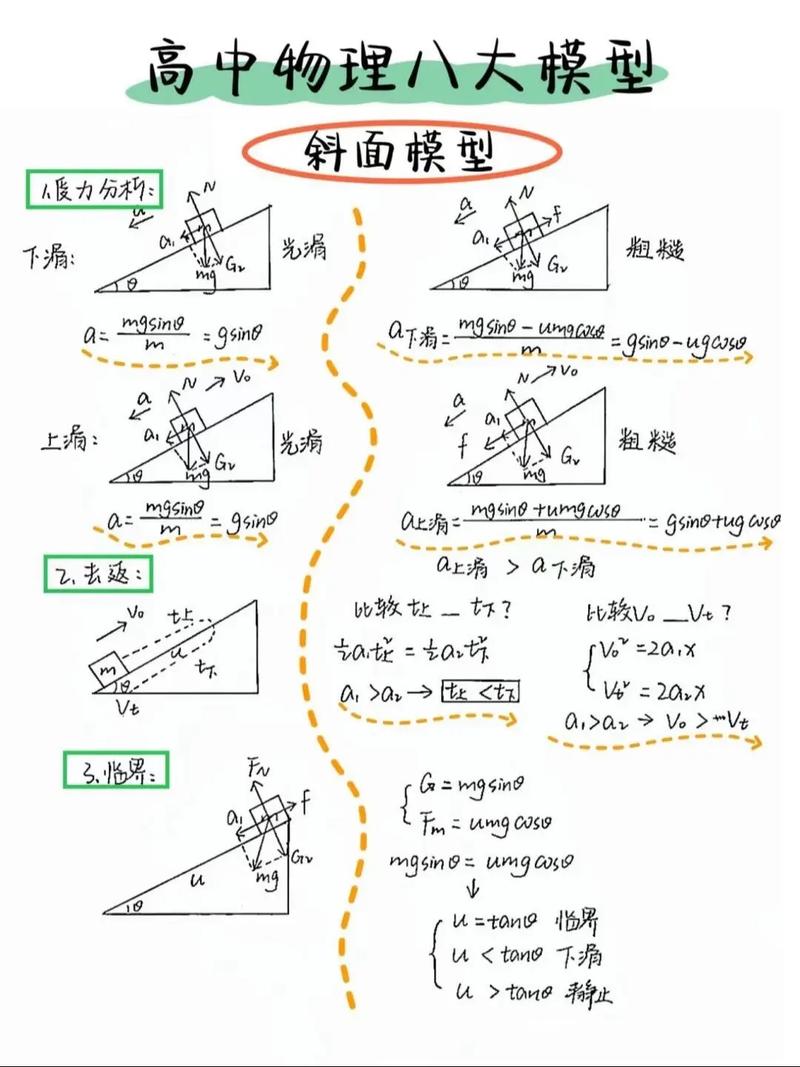 高中物理八大模型
斜面模型
1.受力分析:
下滑:
a
N
a₁
G₂
mg
θ
光滑
a
N
f
a₁
G₂
mg
θ
粗糙
a=mgsinθ/m=gsinθ
a下滑=mgsinθ-umgcosθ/m=gsinθ-ugcosθ
上滑:
a
N
V₀
a₁
G₂
mg
θ
光滑
a
N
V₀
a₁
f
G₂
mg
θ
粗糙
a=mgsinθ/m=gsinθ
a上滑=mgsinθ+umgcosθ/m=gsinθ+ugcosθ
a上滑 > a下滑
2.去返:
V₀
t上
m
u
t下
θ
Vt
比较t上__t下?
½a₁t上²=½a₂t下²
a₁>a₂→t上<t下
比较V₀__Vt?
V₀²=2a₁x
Vt²=2a₂x
a₁>a₂→V₀>Vt
3.临界:
FN
f
a₁
G₂
mg
u
θ
G=mgsinθ
Fm=umgcosθ
mgsinθ=umgcosθ
↓
u=tanθ 临界
u<tanθ 下滑
u>tanθ 静止